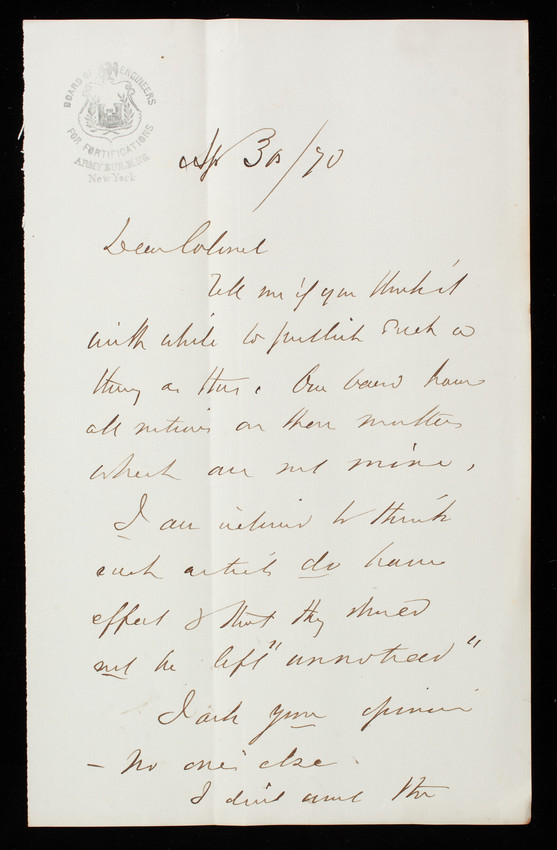 BOARD OF ENGINEERS
FOR FORTIFICATIONS
ARMY BUILDING
New York
Ap 30/70
Dear Colonel
Tell me if you think it
worth while to publish such a
thing as this. Our board have
all notions on these matters
which are not mine.
I am inclined to think
such articles do have
effect & that they should
not be left "unnoticed"
I ask your opinion
- No one's else
I don't want the